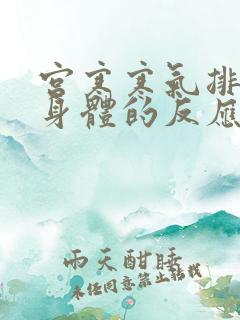 宫寒寒氣排
身體的反應
雨天酣睡
未经同意禁止转载